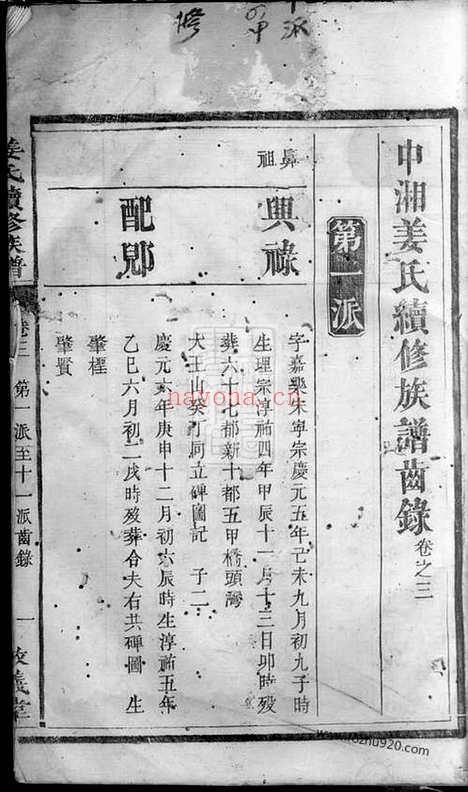 中派
修
中湘姜氏續修族譜齒錄 卷之三
第一派
鼻祖
興祿
字嘉樂宋寧宗慶元五年己未九月初九子時
生理宗淳祐四年甲辰十一月十三日卯時歿
葬六十七都新十都五甲橋頭灣
大王山癸丁向立碑圖記 子二
配鄭
慶元六年庚申十二月初六辰時生淳祐五年
乙巳六月初二戌時歿葬合夫右共碑圖 生
肇樫
肇賢
姜氏續修族譜
卷三
第一派至十一派齒錄
一
敦義堂
nayona.cn
www.kozhu920.com